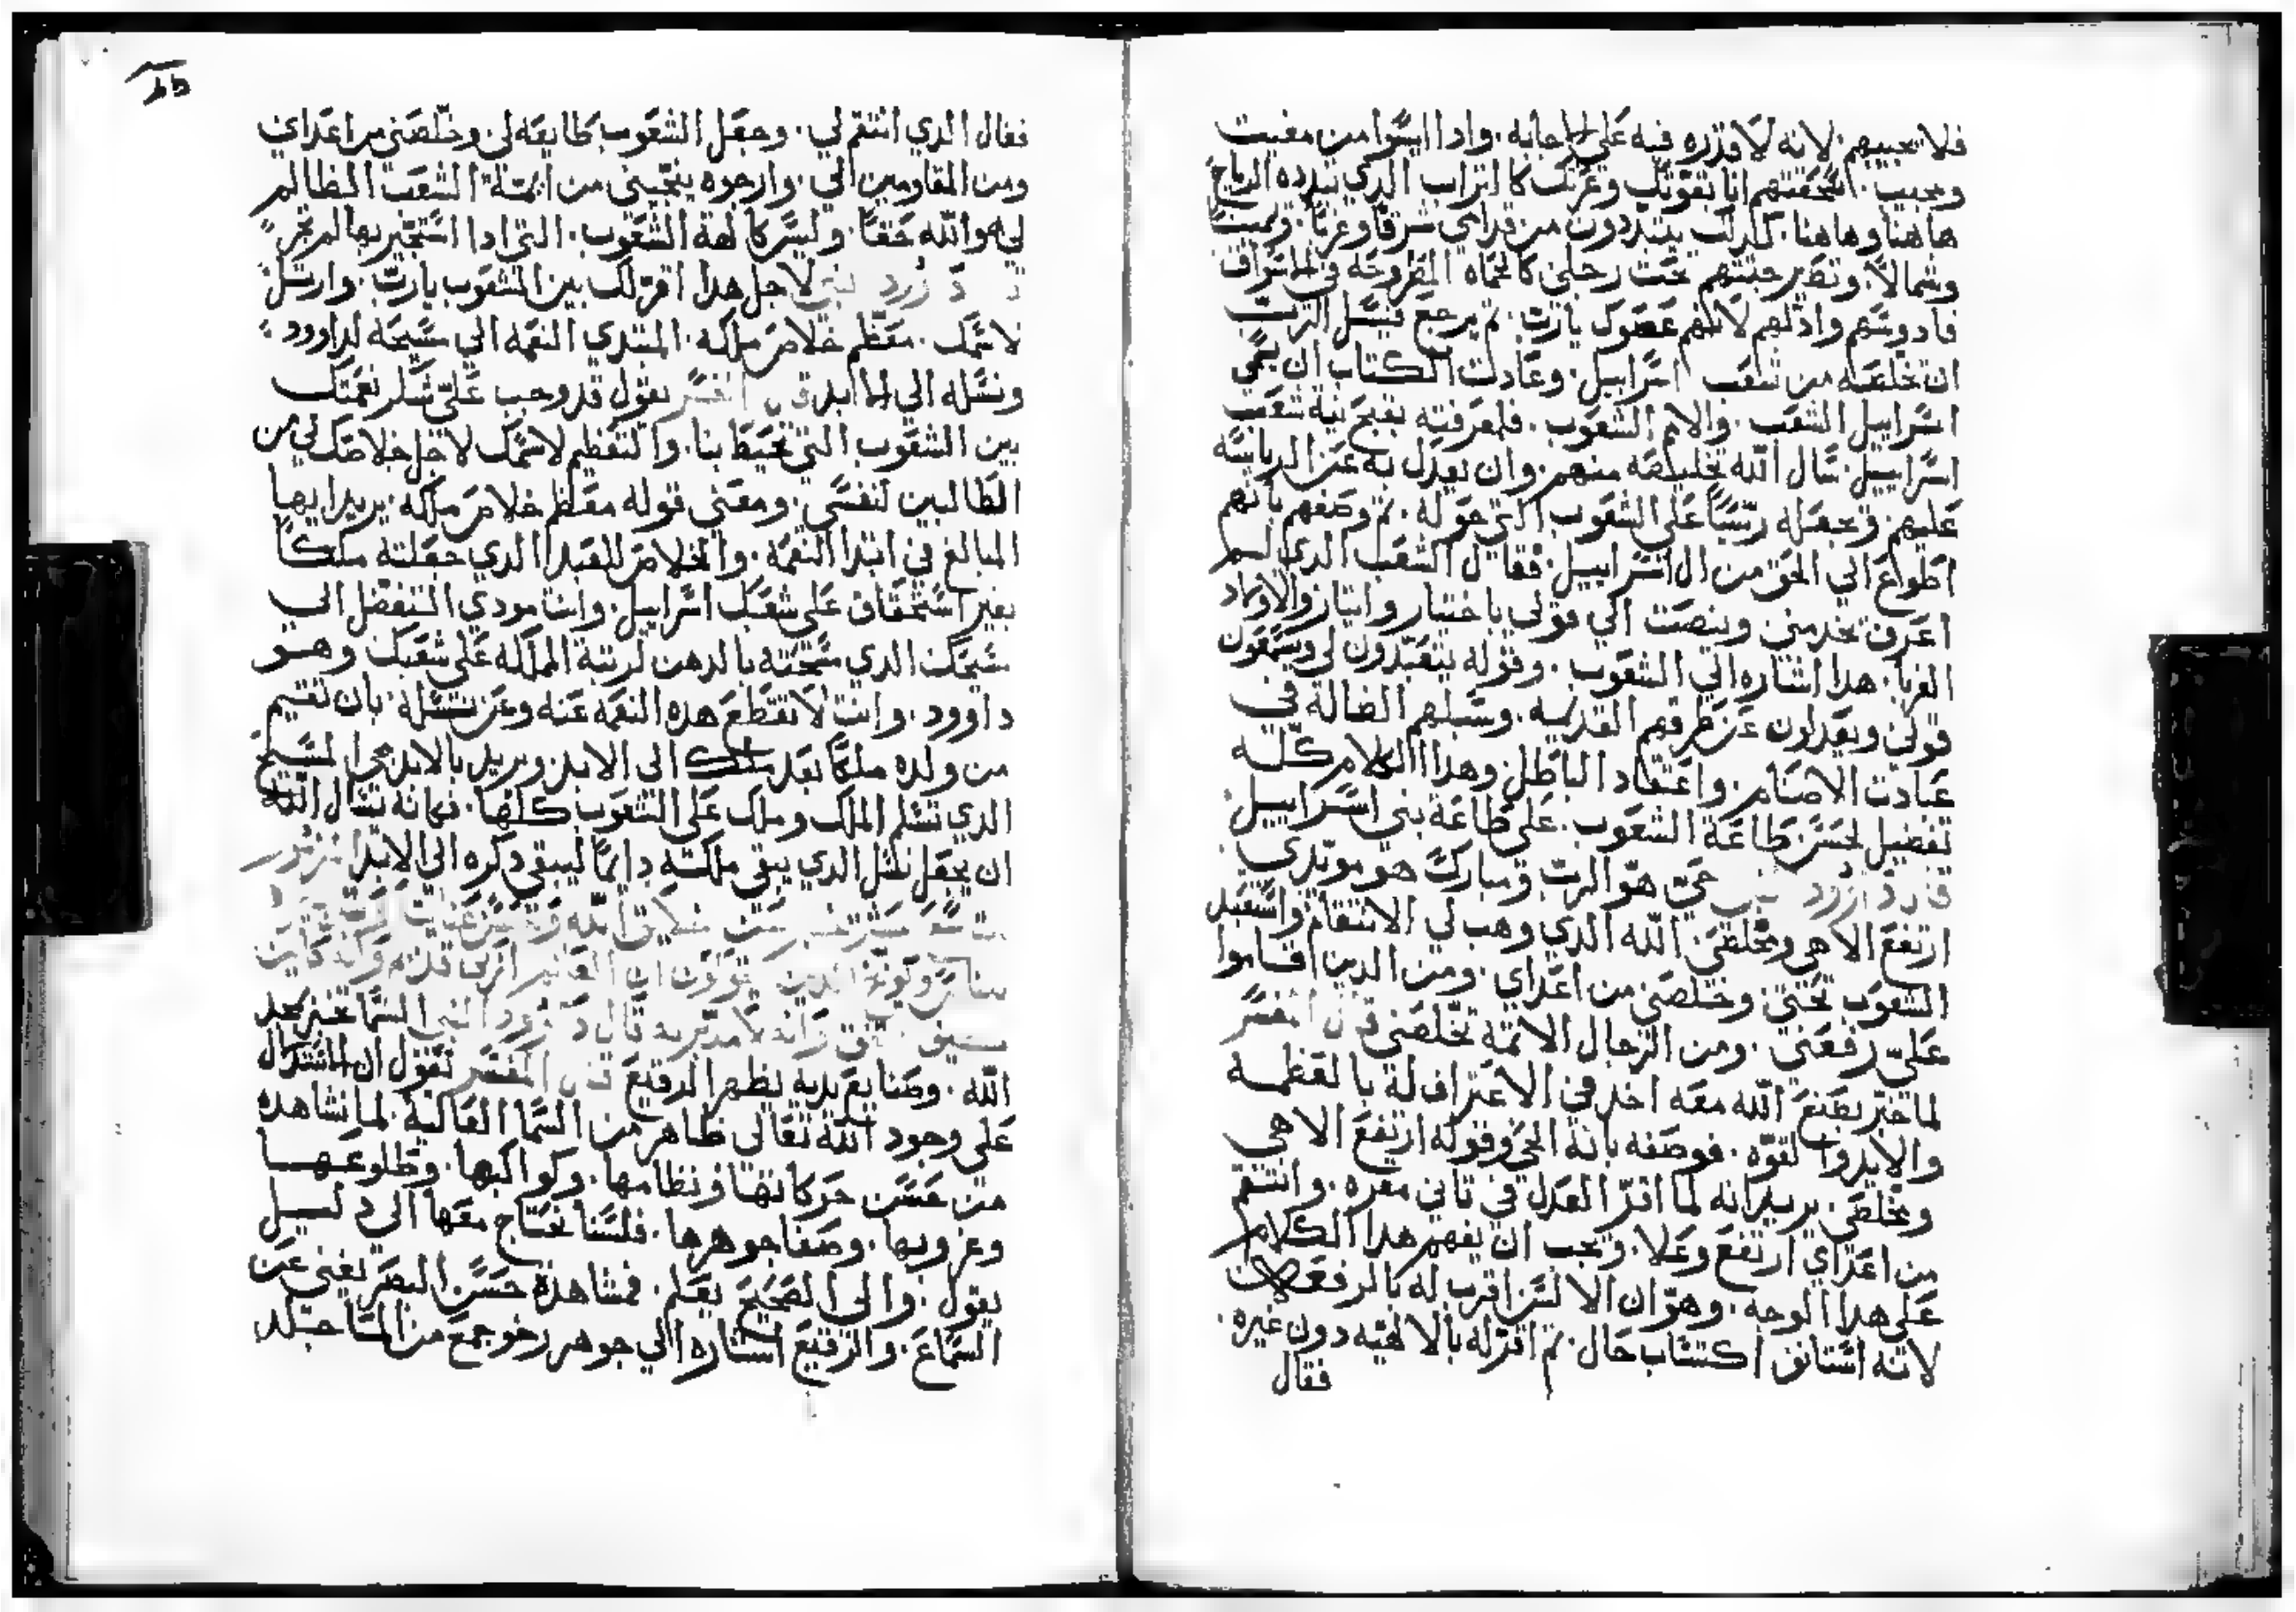 فلا يجيبهم. لانه لا قدره فيه على الاجابه. وادا ايسوا من مغيت
ومجيب. اسحقتهم انا بقوتك وعزتك كالتراب الدي تبدده الرياح
هاهنا وهاهنا. كدلك يتبددون من قدامي شرقا وغربا. ويمينا
وشمالا. وتصير جيتهم تحت رجلي كالحماه المطروحه في الاسواق
فادوسهم وادلهم لانهم عصوك يارب. تم يرجع فيسل الرب
ان تخلصه من شعب اسراييل. وعادت الكتاب ان يسمي
اسراييل الشعب. والامم الشعوب. فلمعرفته بقبح نية شعب
اسراييل. سال الله تخليصه منهم. وان يعدل به عن الرياسه
عليهم. وتجعله رييسا على الشعوب التي حوله. تم وصفهم بانهم
اطواع الي الحق من ال اسراييل. فقال الشعب الدي لم
اعرف تخدمني وينصت الي قولي باختيار وايتار والاولاد
الغربا. هدا اشاره الي الشعوب. وقوله يتعبدون لي ويسمعون
قولي ويعدلون عن طرقهم القديمه. وسبلهم الضالة في
عبادت الاصنام. واعتقاد الباطل. وهدا الكلام كله
تفضيل لحسن طاعة الشعوب. على طاعة بني اسراييل.
قال داوود النبي حي هو الرب ومبارك هو مويدي
ارتفع الاهي ومخلصي. الله الدي وهب لي الانتقام واستعبد
الشعوب تحتي وخلصني من اعداي. ومن الدين اقاموا
علي رفعني. ومن الرجال الاتمه تخلصني قال المفسر
لما خبر بصنع الله معه اخد في الاعتراف له بالعظمه
والايد والقوه. فوصفه بانه الحي وقوله ارتفع الاهي
ومخلصي. يريد انه لما اقر العدل في تاني مقره. وانتقم
من اعداي ارتفع وعلا. ويجب ان يفهم هدا الكلام
على هدا الوجه. وهو ان الالسن اقرت له بالرفعه لا
لانه استانف اكتساب حال. تم اقر له بالالهيه دون غيره.
فقال
فقال الدي انتقم لي. وجعل الشعوب طايعه لي وخلصني من اعداي
ومن المقاومين الي. وارجوه ينجيني من ايمة الشعب الظالم
لي هو الله حقا. وليس كالهة الشعوب. التي ادا استجير بها لم تجر
لاجل هدا اقر لك بين الشعوب يارب. وارتل
لاسمك. معظم خلاص ملكه. المبتدي النعمه الي مسيحه لداوود
ونسله الي الابد قال المفسر يقول قد وجب علي شكر نعمتك
بين الشعوب التي تحيط بنا. والتعظيم لاسمك لاجل خلاصك لي من
الطالبين لنفسي. ومعنى قوله معظم خلاص ملكه. يريد ايها
المبالغ في ابتدا النعمه. والخلاص للعبد الدي جعلته ملكا
بغير استحقاق على شعبك اسراييل. وانت مودي التفضل الي
مسيحك الدي مسحته بالدهن لرتبة المملكه على شعبك وهو
داوود. وانت لا تقطع هده النعمه عنه وعن نسله. بان تقيم
من ولده ملكا بعد ملك الى الابد. ويريد بالابد مجي المسيح
الدي تسلم الملك وملك على الشعوب كلها. فكانه سال الله
ان يجعل نسل الدي يبقي ملكته دايما ليبقى دكره الى الابد المزمور
قال داوود النبي السما تخبر بمجد
الله. وصنايع يديه يظهر الرقيع قال المفسر نقول ان الاستدلال
على وجود الله تعالى ظاهر من السما العالية. لما نشاهده
من حسن حركاتها ونظامها. وكواكبها. وطلوعها
وغروبها. وصفا جوهرها. فلسنا نحتاج معها الى دليل
يقول. والى الصحيح يعلم. فمشاهدة حسن البصر تغني عن
السماع. والرقيع اشاره الي جوهر رخو جمع من الما جلد